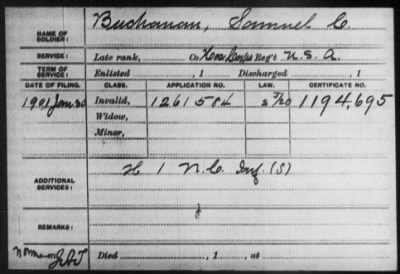 NAME OF SOLDIER: Buchanan, Samuel C.
SERVICE: Late rank, Co. Hosp Corps Reg't U.S.A.
TERM OF SERVICE: Enlisted , 1 Discharged , 1
DATE OF FILING. CLASS. APPLICATION NO. LAW. CERTIFICATE NO.
1901 Jan. 30 Invalid, 1261584 1194,695
Widow,
Minor,
ADDITIONAL SERVICES: H 1 N.C. Inf. (S)
REMARKS:
Died , 1 , at